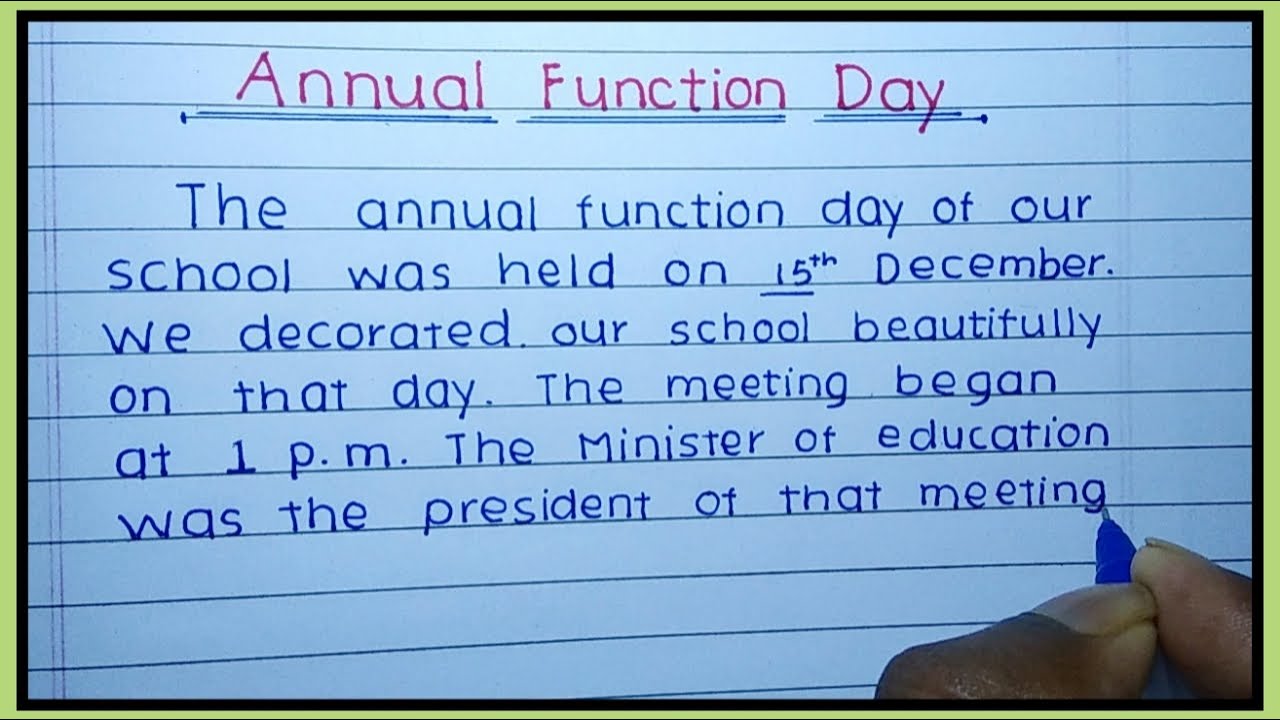 Annual Function Day
The annual function day of our
school was held on 15th December.
We decorated. our school beautifully
on that day. The meeting began
at 1 p.m. The Minister of education
was the president of that meeting